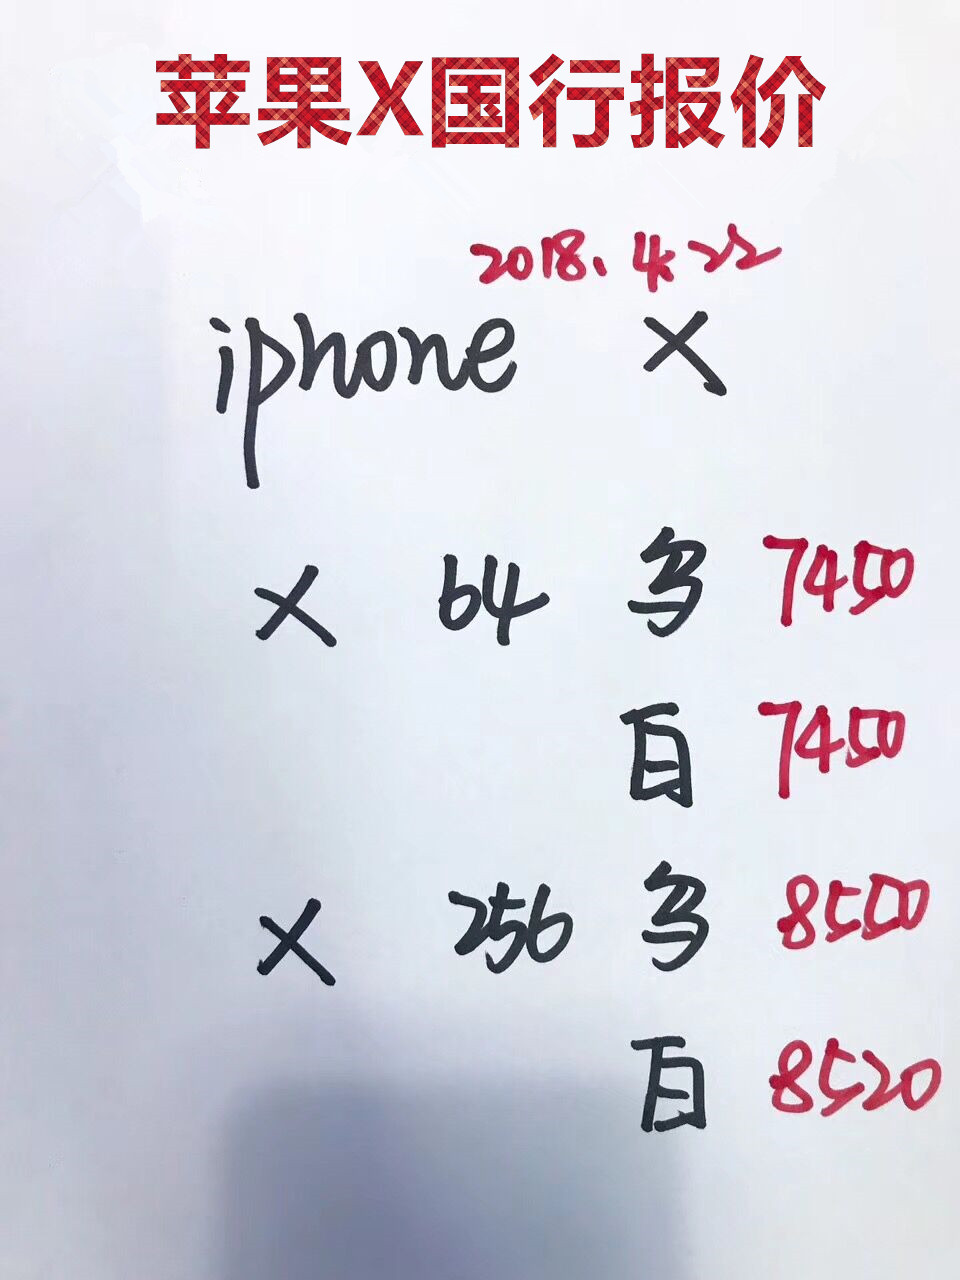 苹果X国行报价
2018.4.22
iphone X
X 64 乌 7450
百 7450
X 256 乌 8550
百 8520